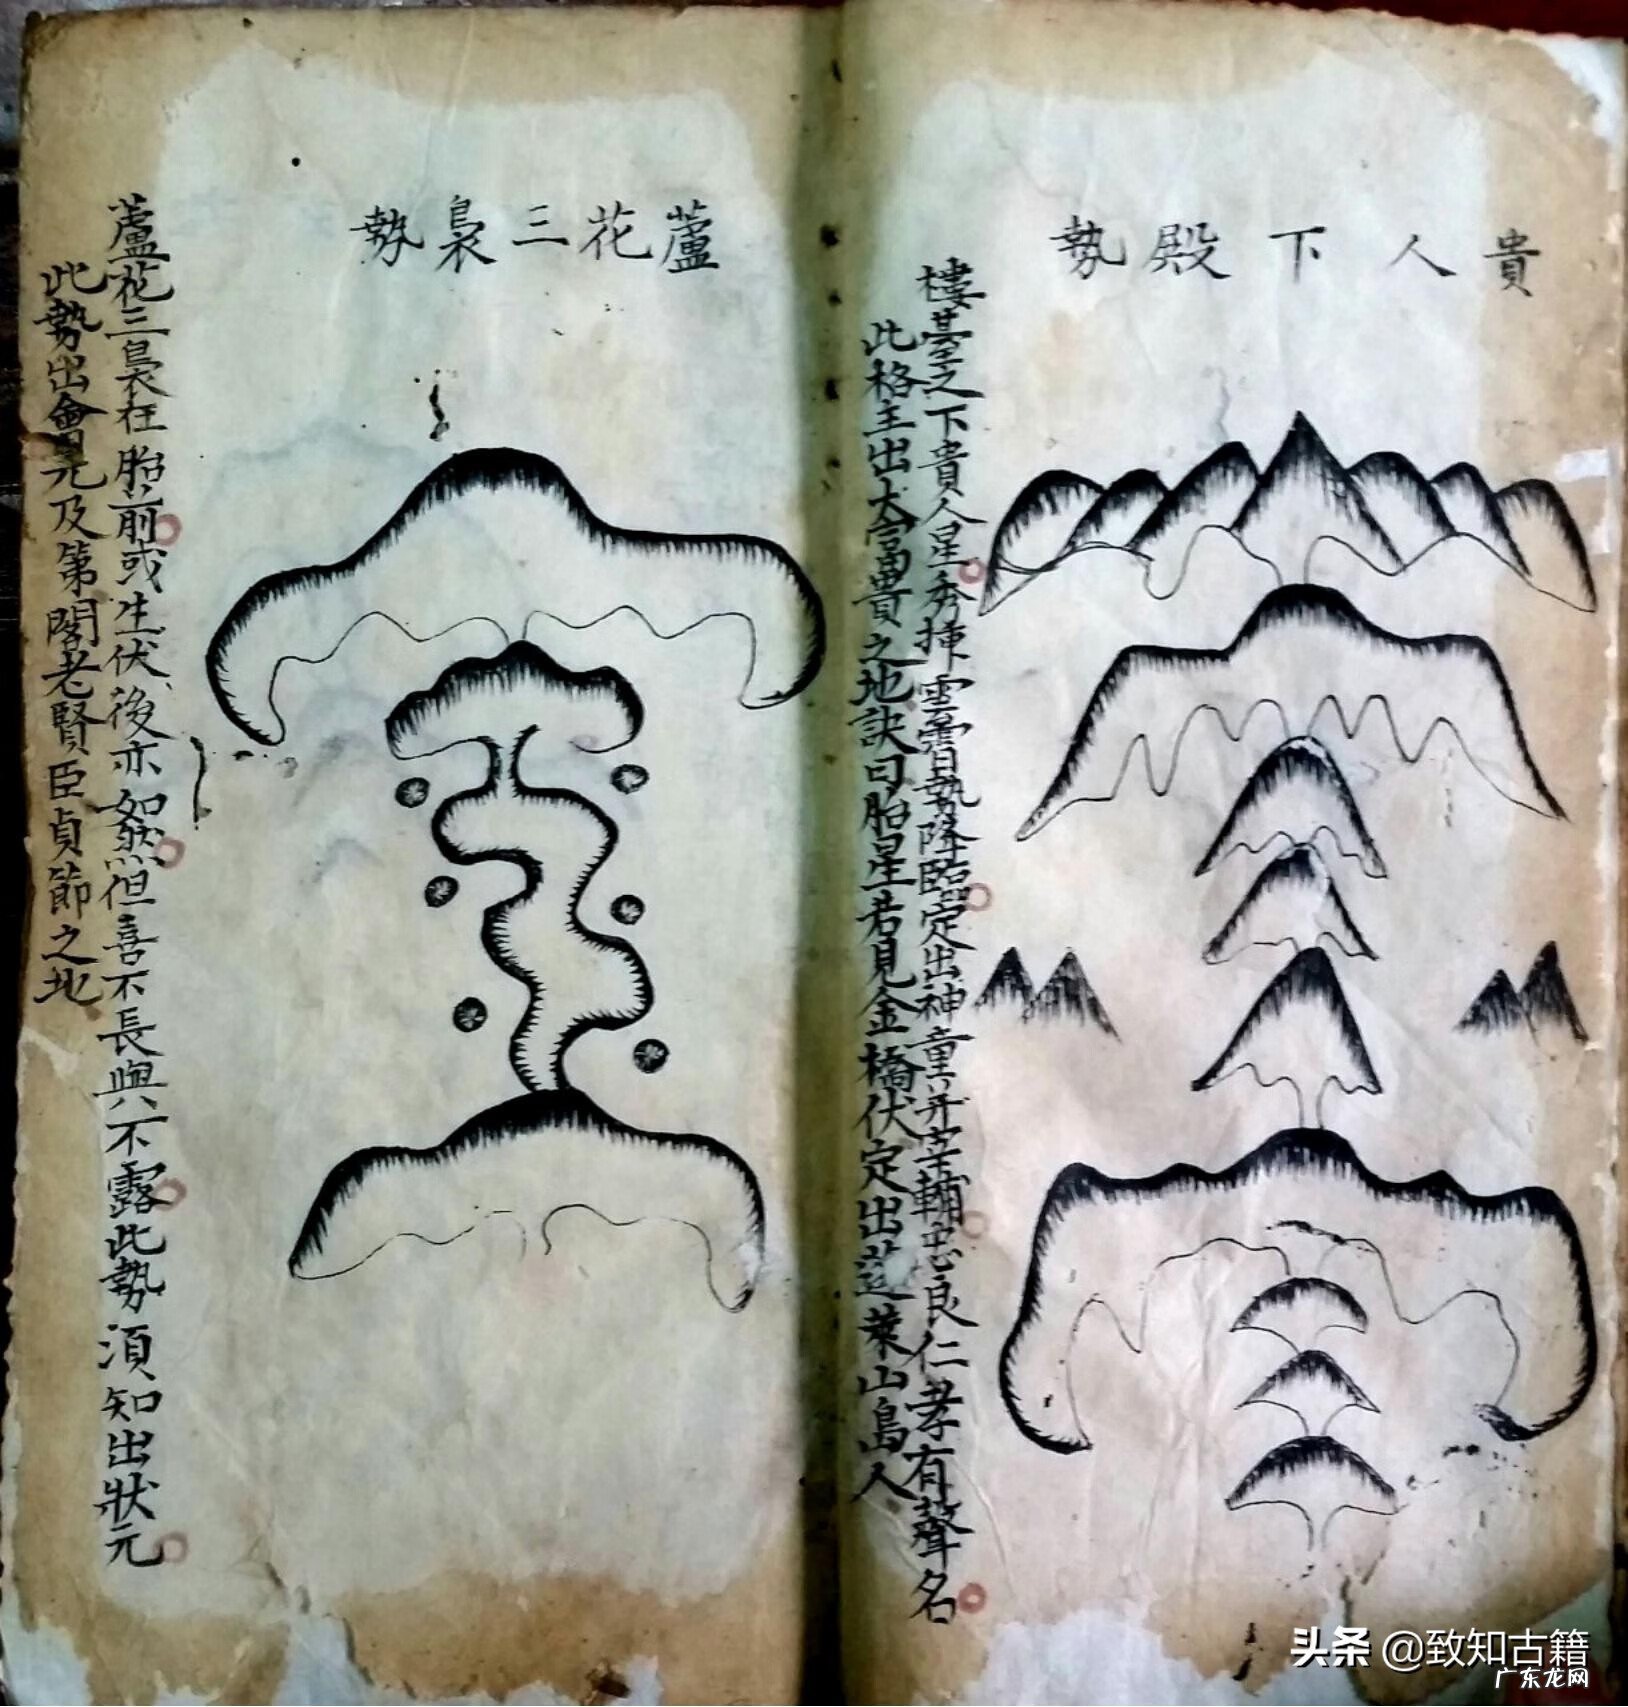 貴人下殿勢
樓基之下貴人星秀插雲霄勢降臨定出神童并宰輔忠良仁孝有聲名
此格主出大富貴之地訣曰胎星若見金橋伏定出蓬萊山島人
蘆花三裊勢
蘆花三裊在胎前或生伏後亦如然但喜不長與不露此勢須知出狀元
此勢出會元及第閣老賢臣貞節之地
头条 @致知古籍
广东龙网